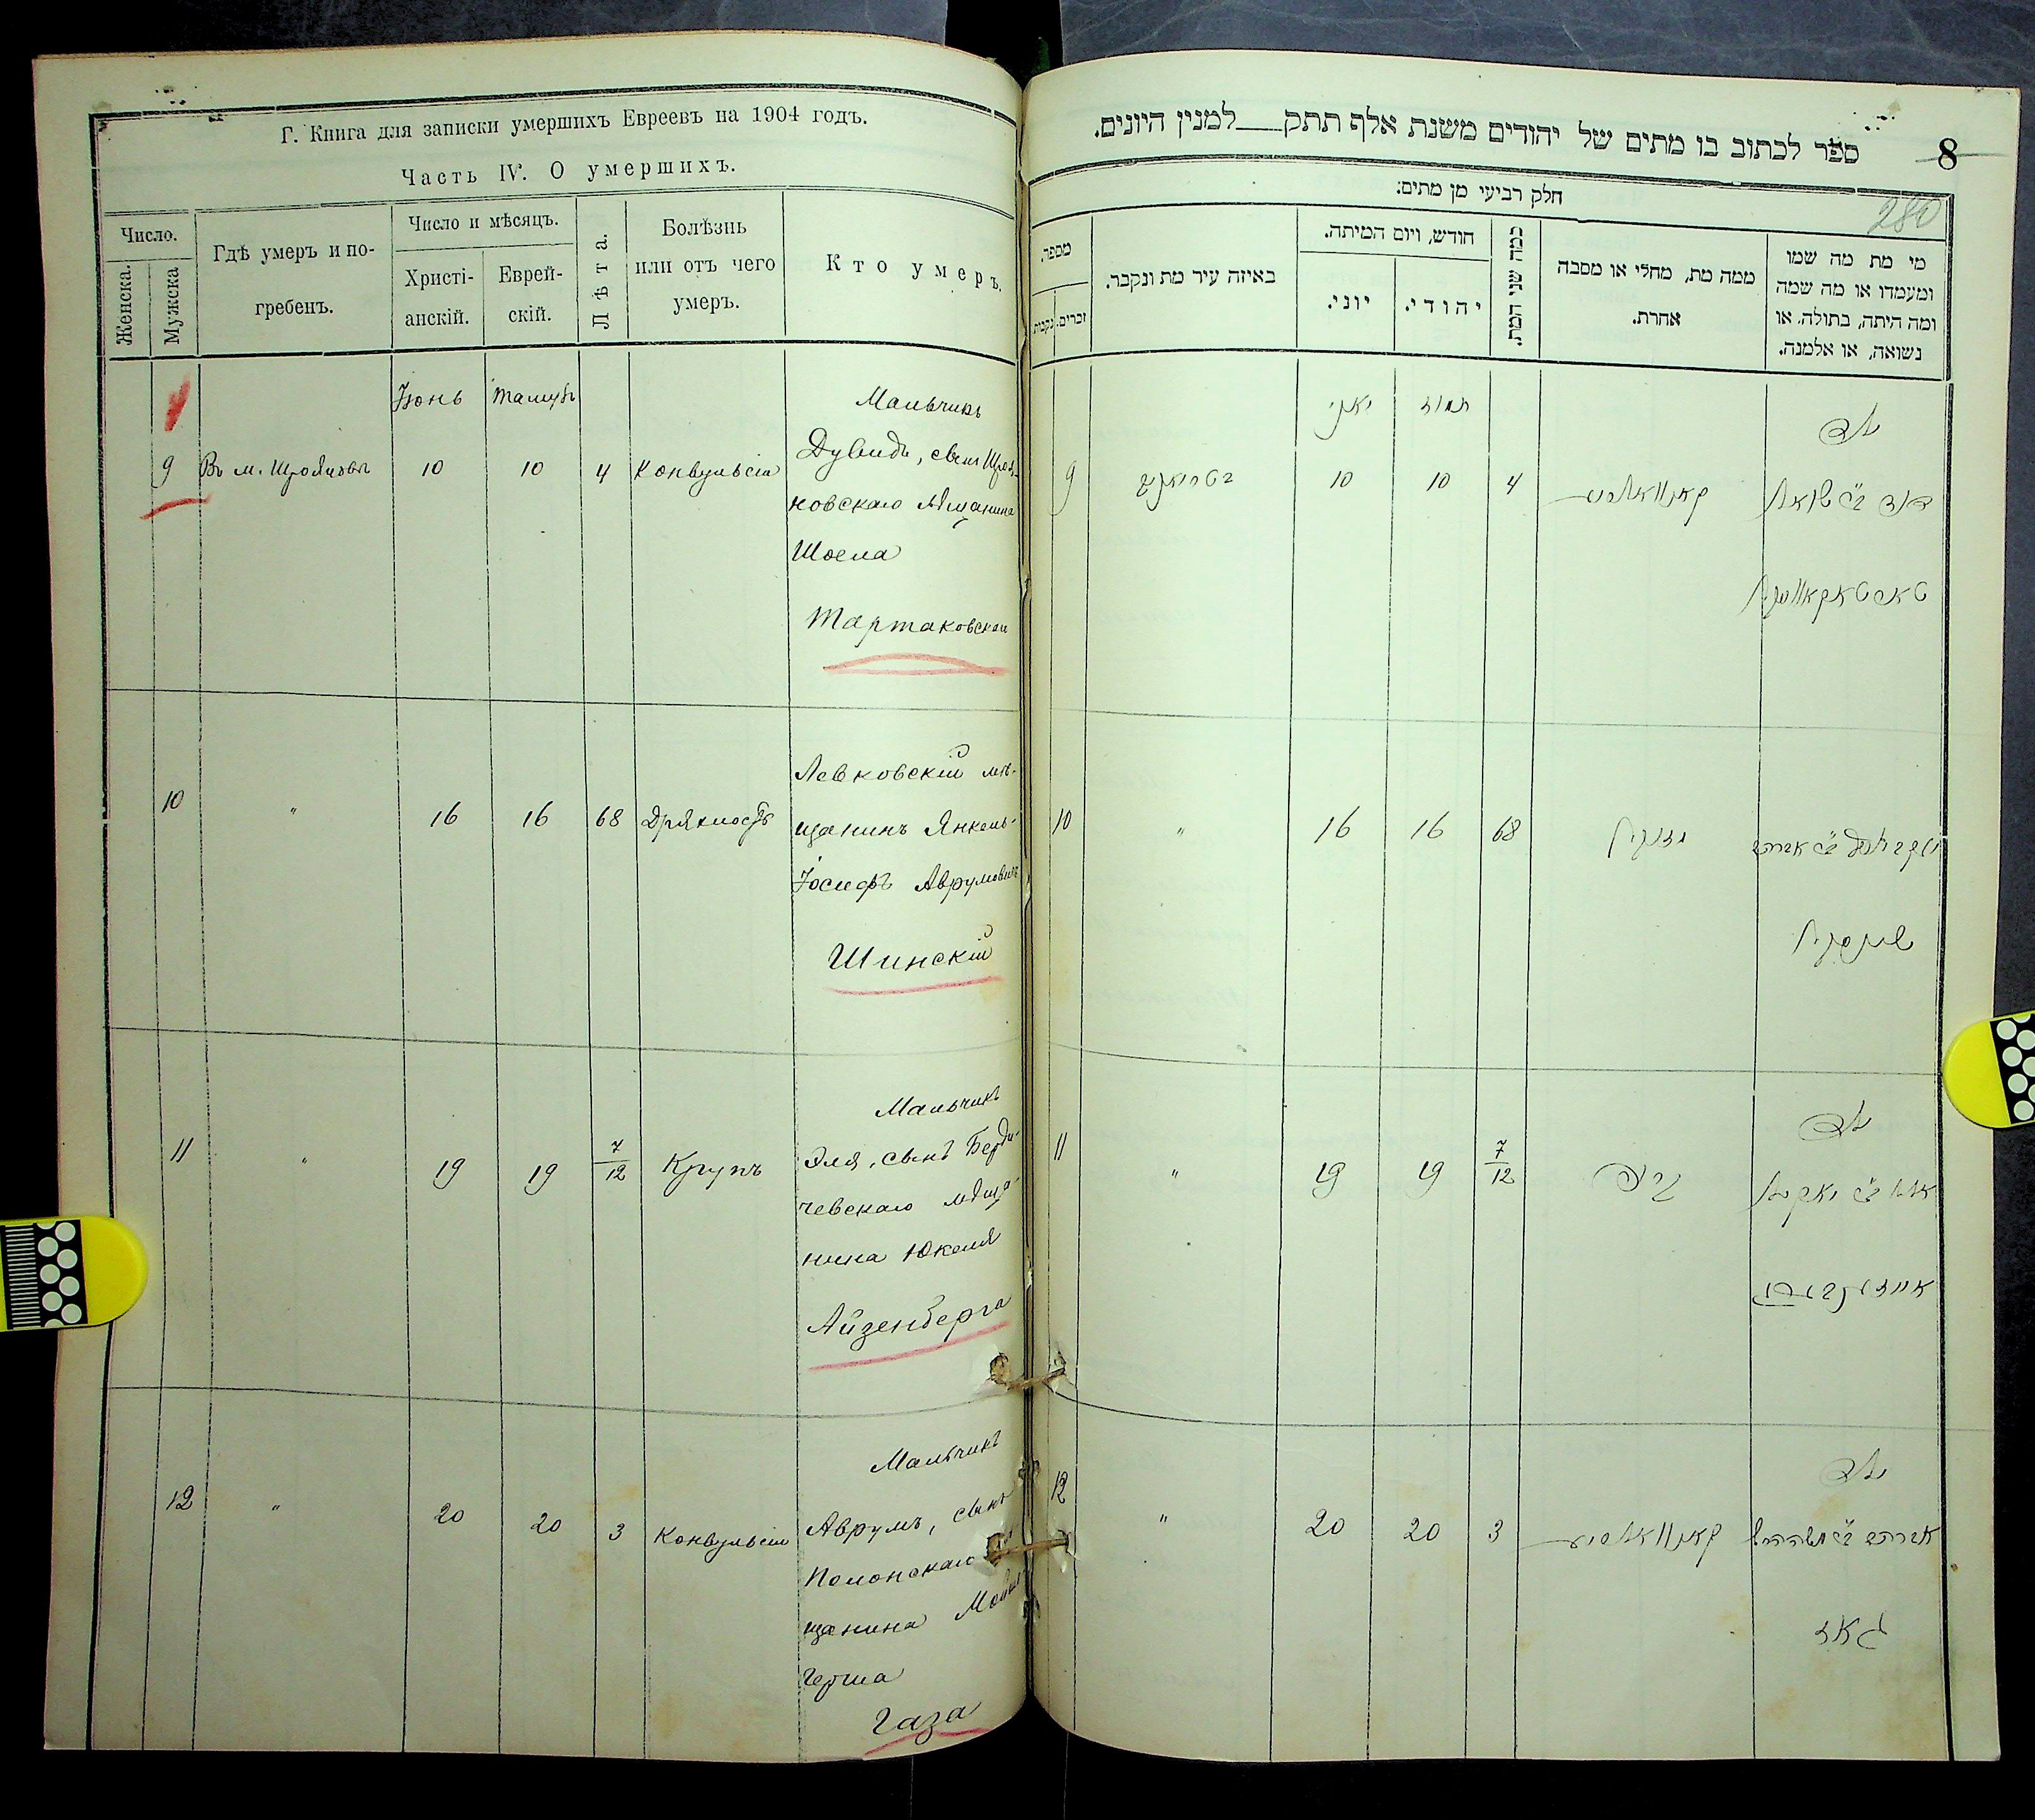 Г. Книга для записки умершихъ Евреевъ на 1904 годъ.
Часть IV. О умершихъ.
Число.
Женска.
Мужска
Гдѣ умеръ и по-
гребенъ.
Число и мѣсяцъ.
Христі-
анскій.
Еврей-
скій.
Лѣта.
Болѣзнь
или отъ чего
умеръ.
Кто умеръ.
Іюнь Тамузъ
9 Въ м. 10 10 4 Конвульсіи
Мальчикъ
Дувидъ, сынъ
ковскаго Мѣщанина
Шоела
Тартаковскаго
10 " 16 16 68 Дряхлость
Левковскій мѣ-
щанинъ Янкель-
Іосифъ Аврумовичъ
Шинскій
11 " 19 19 7/12 Крупъ
Мальчикъ
Эля, сынъ Берди-
чевскаго мѣща-
нина Юкеля
Айзенберга
12 " 20 20 3 Конвульсіи
Мальчикъ
Аврумъ, сынъ
Полонскаго
щанина
Герша
Газа
ספר לכתוב בו מתים של יהודים משנת אלף תתק__למנין היונים.
8
280
חלק רביעי מן מתים:
מספר.
זכרים.
נקבות.
באיזה עיר מת ונקבר.
חודש, ויום המיתה.
יוני.
יהודי.
כמה שני המת.
ממה מת, מחלי או מסבה
אחרת.
מי מת מה שמו
ומעמדו או מה שמה
ומה היתה, בתולה, או
נשואה, או אלמנה.
תמוז
9 10 10 4 קאנוואלסיע
ילד
דוד ב"ר שואל
טארטאקאווסקי
10 " 16 16 68 זקנה
יעקב יוסף ב"ר אברהם
שינסקי
11 " 19 19 7/12
ילד
אלי ב"ר יאקיל
אייזענבערג
12 " 20 20 3 קאנוואלסיע
ילד
אברהם ב"ר משה הירש
גאז